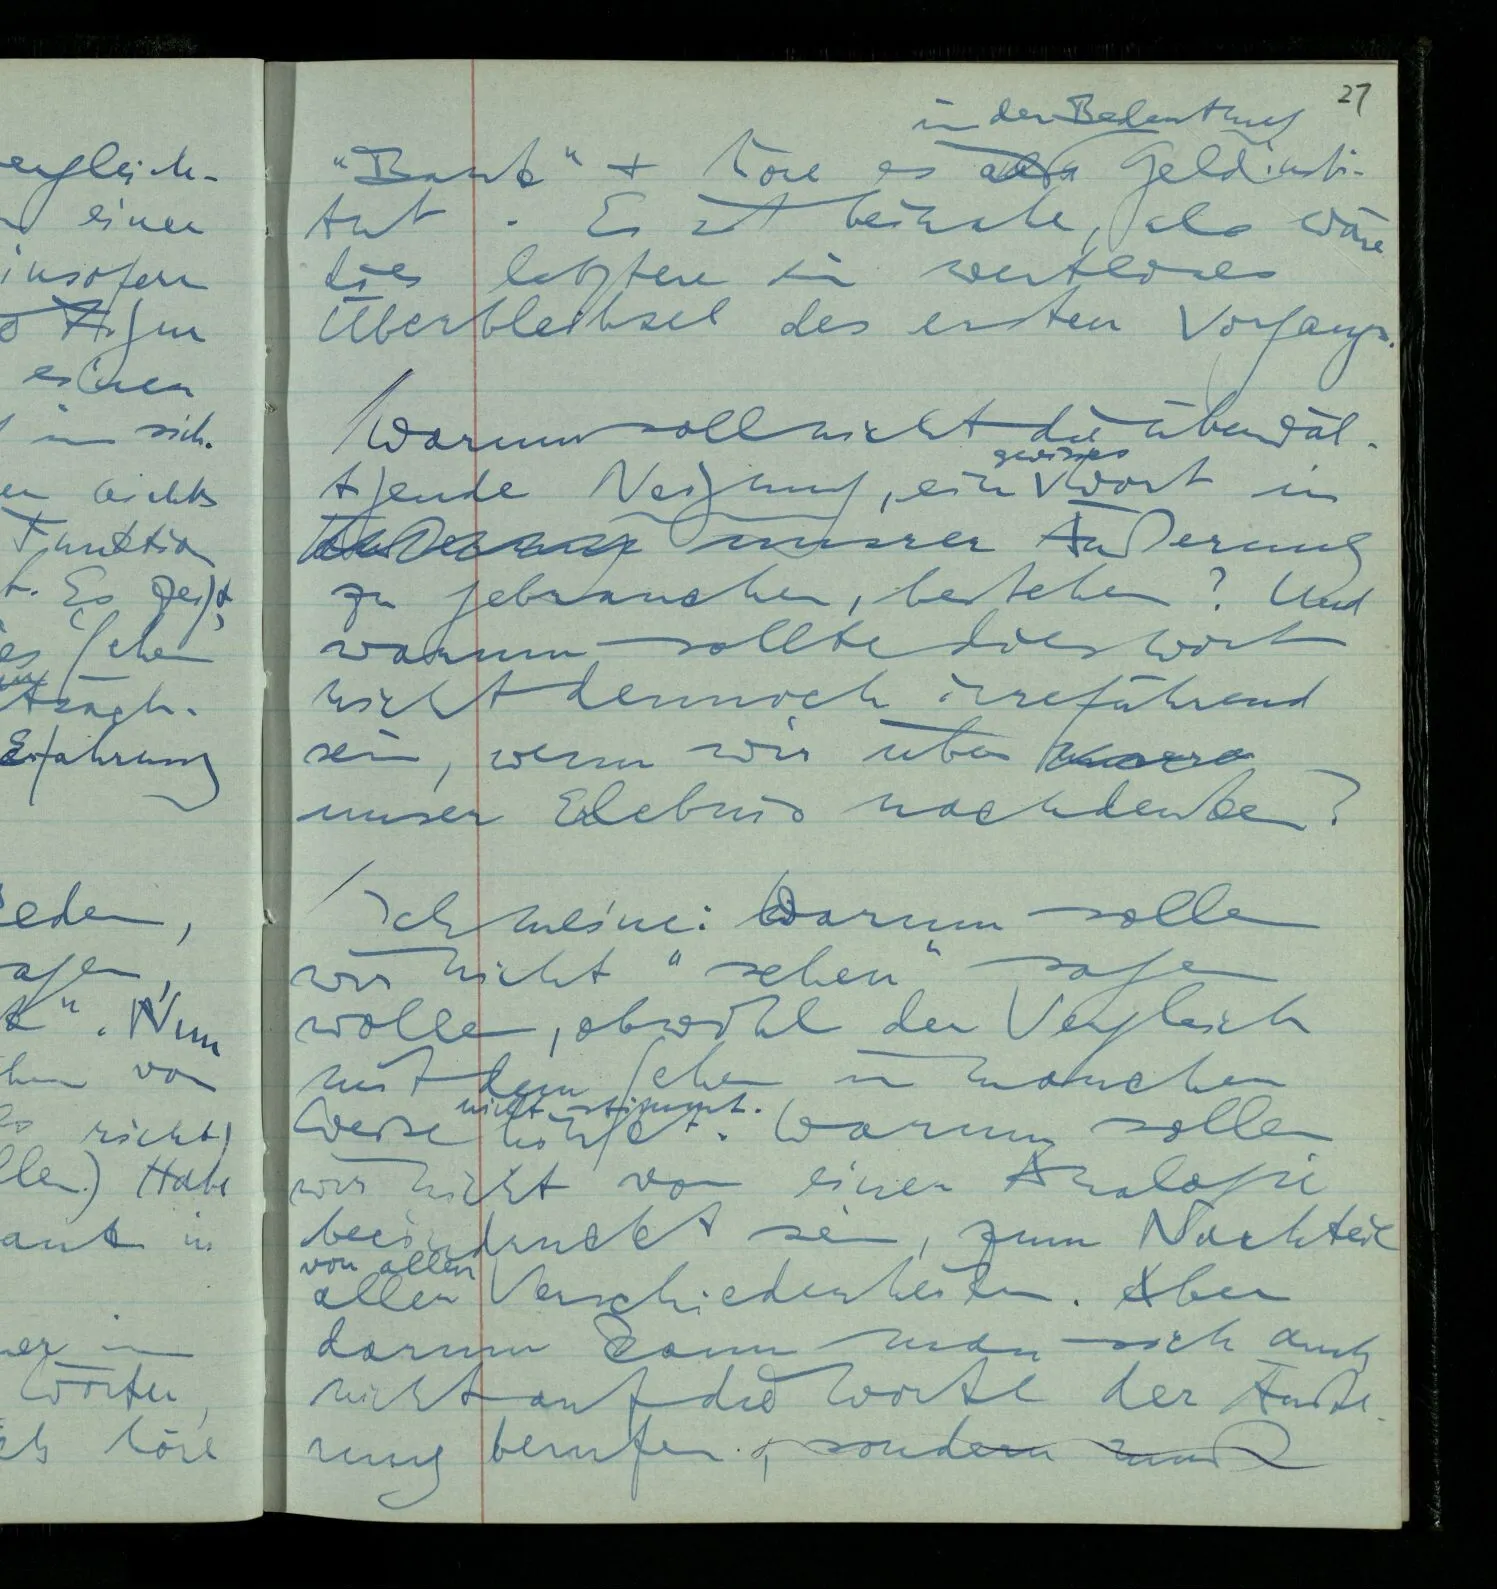 ergleich-
einer
insofern
einen
in sich.
nichts
Funktion
Es zeigt,
Sehen
Erfahrung
eden,
agen,
". Nun
von
richt
llen.) Habe
in
er in
Wörter,
ich höre
27
in der Bedeutung
"Bank" + höre es als Geldinsti-
tut. Es ist beinahe, als wäre
dies letztere ein wertloses
Überbleibsel des ersten Vorgangs.
/ Warum soll nicht die überwäl-
gewisses
tigende Neigung, ein Wort in
unsrer Äußerung
zu gebrauchen, bestehen? Und
warum sollte dies Wort
nicht dennoch irreführend
sein, wenn wir über
unser Erlebnis nachdenken?
/ Ich meine: Warum sollen
wir nicht "sehen" sagen
wollen, obwohl der Vergleich
mit dem Sehen in mancher
nicht stimmt.
Weise hinkt. Warum sollen
wir nicht von einer Analogie
beeindruckt sein, zum Nachteil
von allen
aller Verschiedenheiten. Aber
darum kann man sich auch
nicht auf die Worte der Äuße-
rung berufen, sondern muß